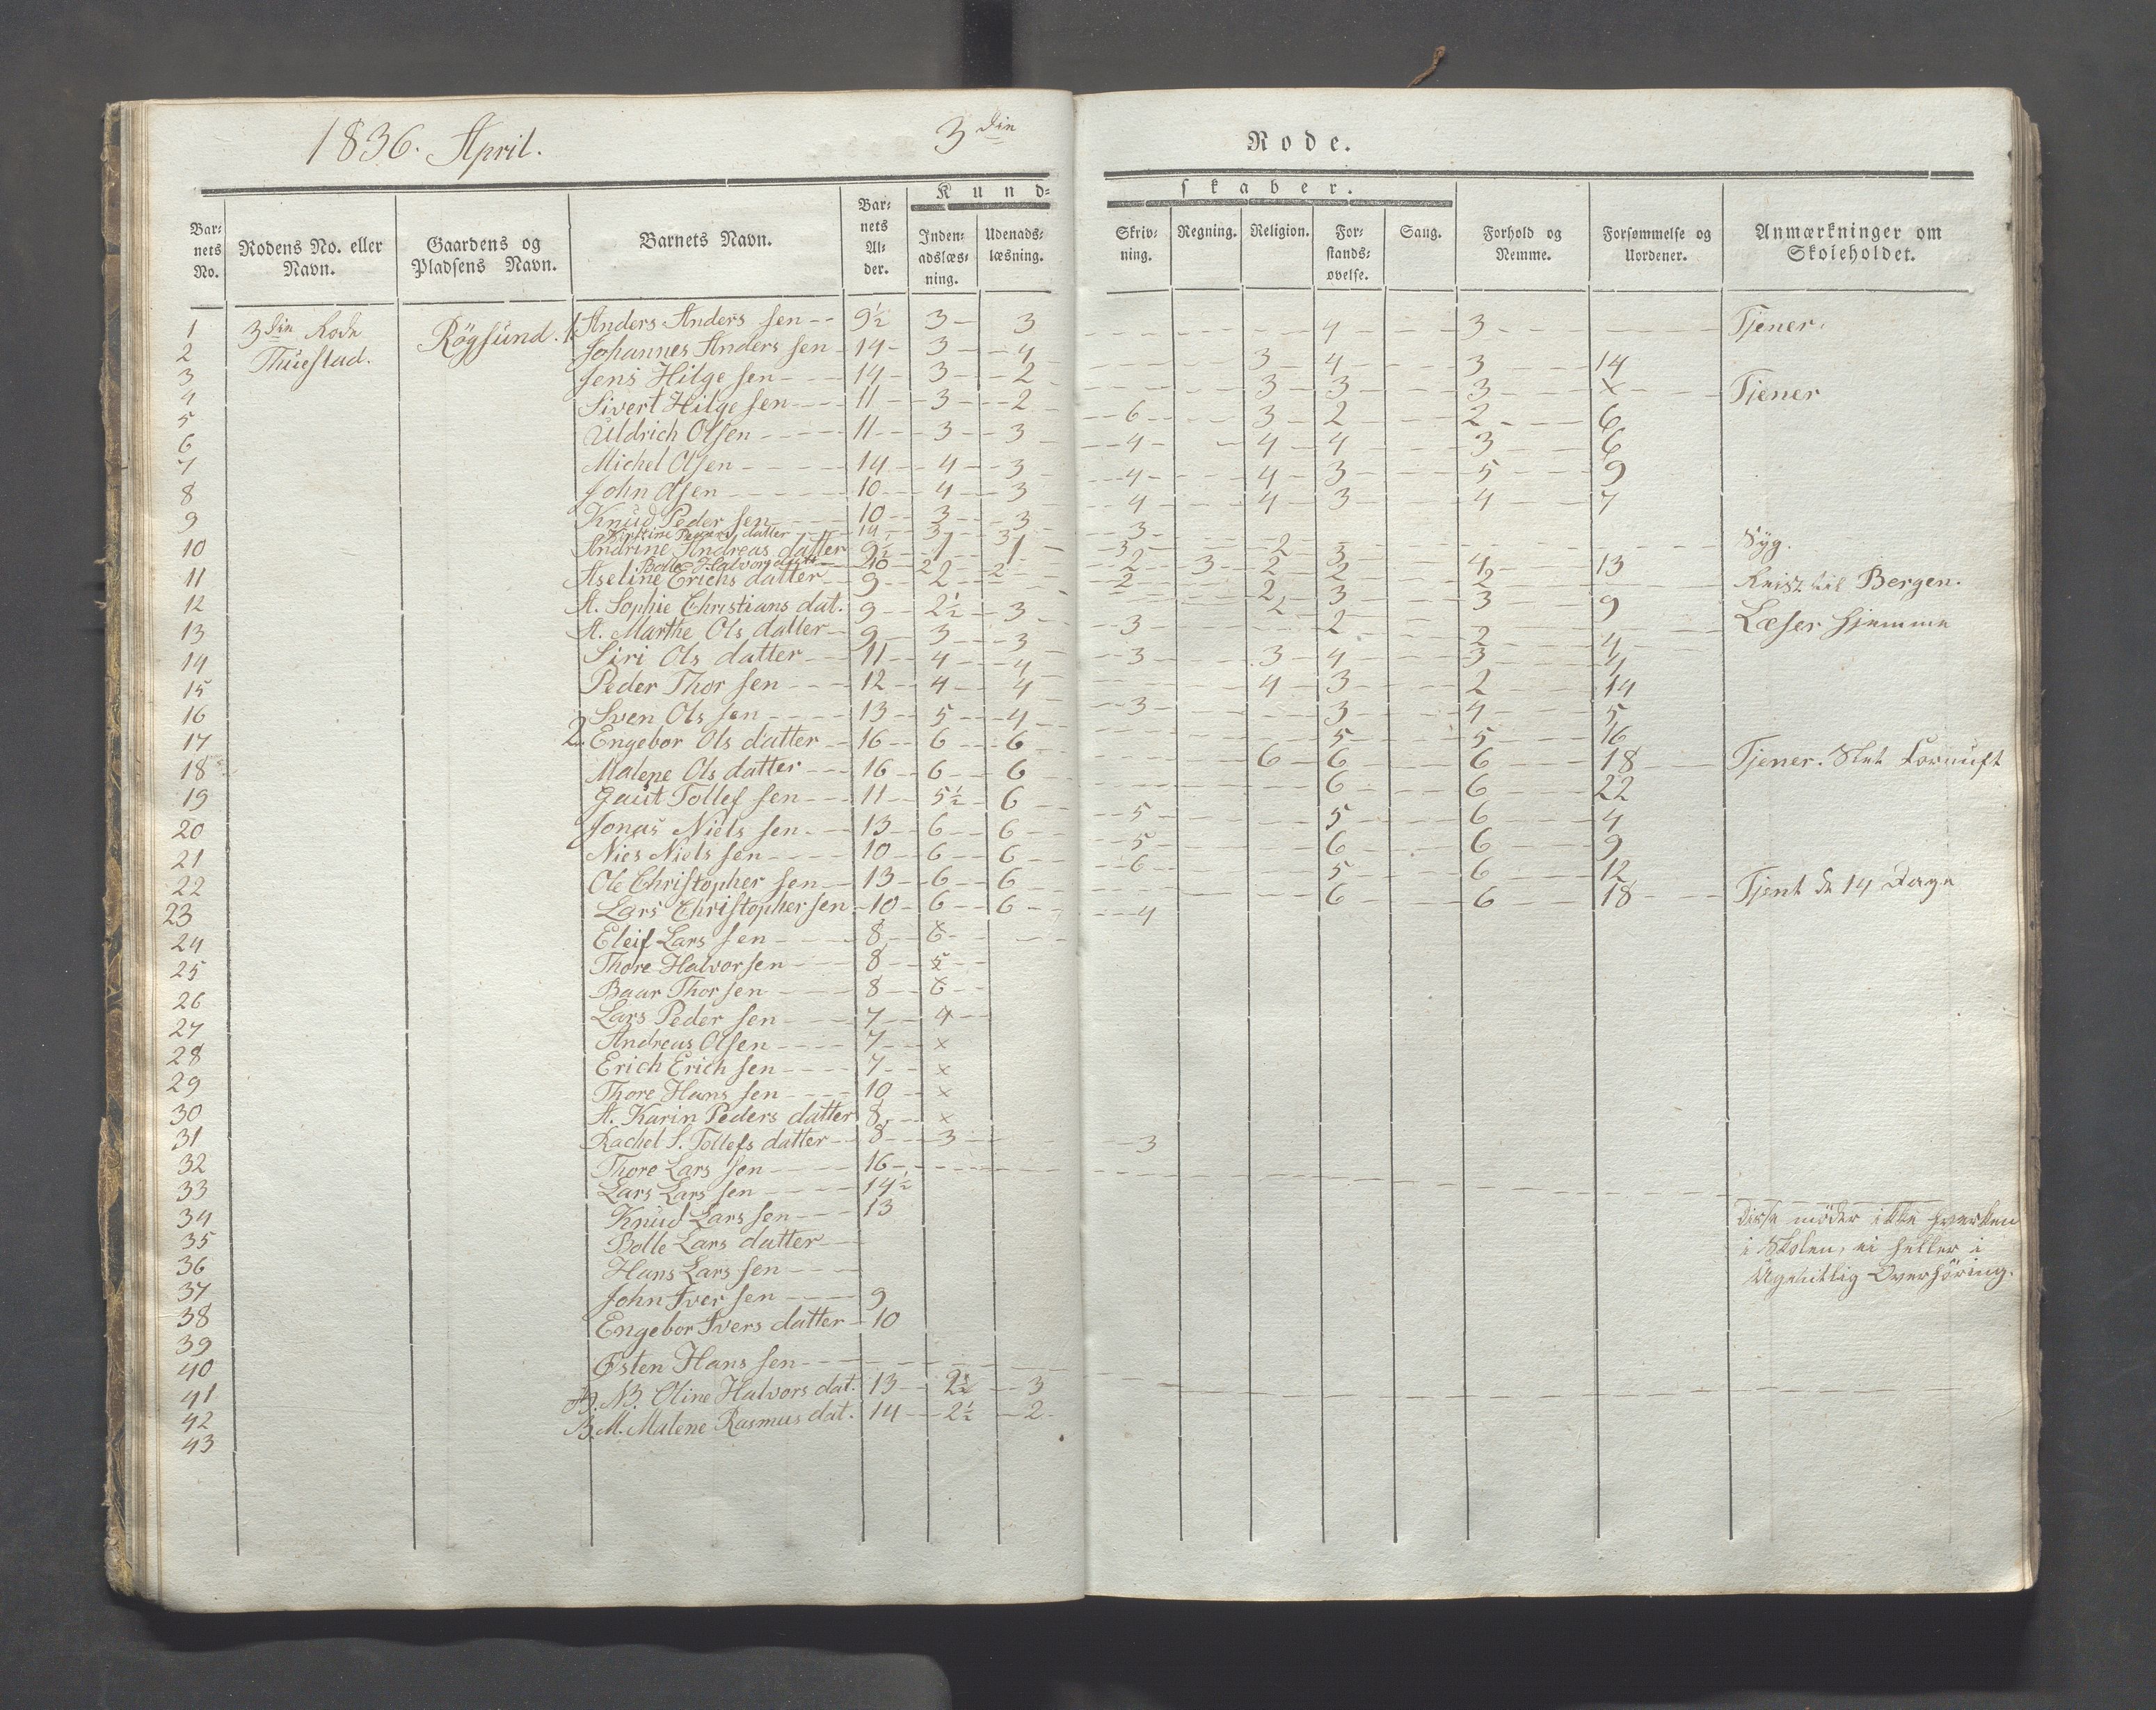 1836. April. 3die Rode.
Kundskaber.
Barnets No. Rodens No. eller Navn. Gaardens og Pladsens Navn. Barnets Navn. Barnets Alder. Indenadslæsning. Udenadslæsning. Skrivning. Regning. Religion. Forstandsøvelse. Sang. Forhold og Nemme. Forsømmelse og Uordener. Anmærkninger om Skoleholdet.
1 3die Rode Rögsund. 1. Anders Anders sen 9½ 3 3 4 3 Tjener.
2 Thuestad. Johannes Anders sen 14 3 4 3 4 3 14
3 Jens Hilge sen 14 3 2 3 3 3 x Tjener
4 Sivert Hilge sen 11 3 2 6 3 2 2 6
5 Uldrich Olsen 11 3 3 4 4 4 3 6
6 Michel Olsen 14 4 3 4 4 3 5 9
7 John Olsen 10 4 3 4 4 3 4 7
8 Knud Peder sen 10 3 3 3 Syg.
Kirstine Peders datter 14 3 3 3 2
9 Andrine Andreas datter 9½ 1 1 2 3 2 3 4 13
10 Bolle Halvors datt 10 2 2 2 2 2 2 Reist til Bergen.
11 Aseline Erichs datter 9 2 2 3 3 9
12 A. Sophie Christians dat. 9 2½ 3 3 2 Læser hjemme
13 A. Marthe Ols datter 9 3 3 2 4
14 Siri Ols datter 11 4 4 3 3 4 3 4
15 Peder Thor sen 12 4 4 4 3 2 14
16 Sven Ols sen 13 5 4 3 3 4 5
17 2. Engebor Ols datter 16 6 6 5 5 16
18 Malene Ols datter 16 6 6 6 6 6 18 Tjener. Slet Fornuft
19 Gaut Tollef sen 11 5½ 6 6 6 22
20 Jonas Niels sen 13 6 6 5 5 6 4
21 Nies Niels sen 10 6 6 5 6 6 9
22 Ole Christopher sen 13 6 6 6 5 6 12
23 Lars Christopher sen 10 6 6 4 6 6 18 Tjent de 14 Dage
24 Eleif Lars sen 8 6
25 Thore Halvorsen 8 5
26 Baar Thor sen 8 6
27 Lars Peder sen 7 4
28 Andreas Olsen 7 x
29 Erich Erich sen 7 x
30 Thore Hans sen 10 x
31 A. Karin Peders datter 8 x
32 Rachel S. Tollefs datter 8 3 3
33 Thore Lars sen 16
34 Lars Lars sen 14½
35 Knud Lars sen 13 Disse möder ikke hverken
36 Bolle Lars datter i Skolen, ei heller i
37 Hans Lars sen Ugentlig Overhöring.
38 John Iver sen 9
39 Engebor Ivers datter 10
40 Østen Hans sen
41 Oline Halvors dat. 13 2½ 3
42 B. M. Malene Rasmus dat. 14 2½ 2
43